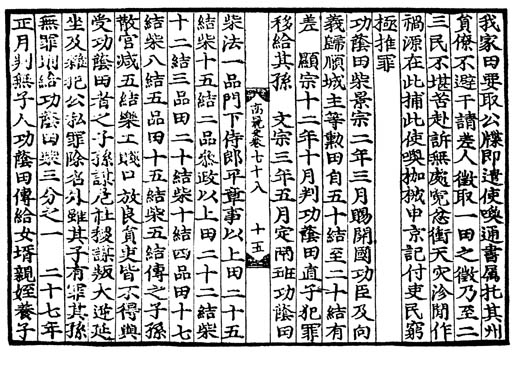 我家田要取公牒卽遣使喚通書屬托其州
員僚不避干請差人徵取一田之徵乃至二
三民不堪苦赴訴無處寃忿衝天灾沴閒作
禍源在此捕此使喚枷械申京記付吏民窮
極推罪
功蔭田柴景宗二年三月賜開國功臣及向
義歸順城主等勳田自五十結至二十結有
差 顯宗十二年十月判功蔭田直子犯罪
移給其孫 文宗三年五月定兩班功蔭田
高麗史卷七十八 十五
柴法一品門下侍郎平章事以上田二十五
結柴十五結二品叅政以上田二十二結柴
十二結三品田二十結柴十結四品田十七
結柴八結五品田十五結柴五結傳之子孫
散官减五結樂工賤口放良貟吏皆不得與
受功蔭田者之子孫謀危社稷謀叛大逆延
坐及雜犯公私罪除名外雖其子有罪其孫
無罪則給功蔭田柴三分之一 二十七年
正月判無子人功蔭田傳給女壻親姪養子